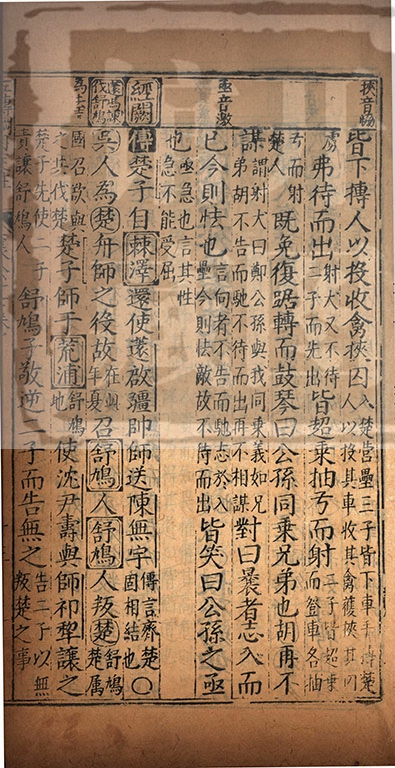 挾音協
皆下搏人以投收禽挾囚入楚營壘三子皆下車手搏楚人以投其車收其禽獲挾其囚
虜弗待而出射犬又不待二子而先出皆超乘抽弓而射二子皆超乘而登車各抽
弓而射楚人既免復踞轉而鼓琴曰公孫同乘兄弟也胡再不
謀謂射犬曰鄭公孫與我同乘義如兄弟胡不告而馳不待而出再不相謀對曰曩者志入而
亟音激
已今則怯也言向者不告而馳志於入壘今則怯敵故不待而出皆笑曰公孫之亟
也亟急也言其性急不能受屈
經闕
傳楚子自棘澤還使薳啟彊帥師送陳無宇傳言齊楚固相結也○
伐舒鳩
吳人為楚舟師之役故在年夏召舒鳩人舒鳩人叛楚舒鳩楚屬
國召欲與之共伐楚楚子師于荒浦舒鳩地使沈尹壽與師祁犂讓之
楚子先使二子責讓舒鳩人舒鳩子敬逆二子而告無之告二子以無叛楚之事